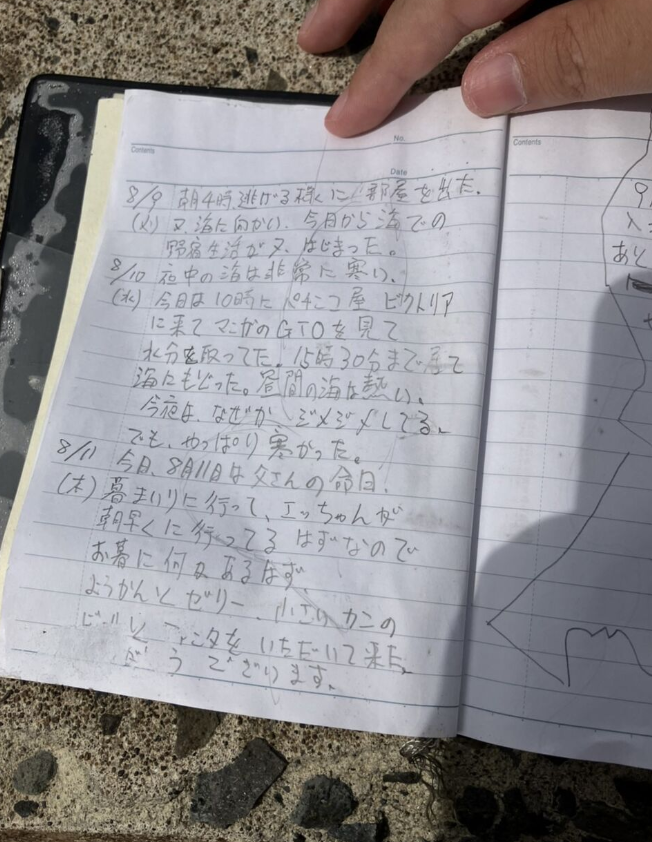 Contents
No.
Date
8/9 朝4時逃げる様に部屋を出た。
(火) 又海に向かい、今日から海での
野宿生活が又、はじまった。
8/10 夜中の海は非常に寒い。
(水) 今日は10時にパチンコ屋 ビクトリア
に来て マンガのGTOを見て
水分を取ってた。15時30分まで居て
海にもどった。昼間の海は熱い。
今夜は、なぜか ジメジメしてる、
でも、やっぱり寒かった。
8/11 今日、8月11日は父さんの命日、
(木) 暮まいりに行って、エッちゃんが
朝早くに行ってる はずなので
お暮に何か あるはず
ようかんと ゼリー、小さい カンの
ビールと いただいて来た。
Contents